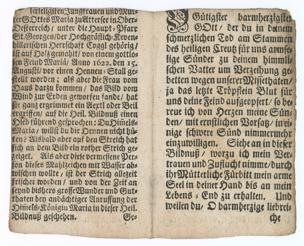 terseligsten Jungfrauen und Mut-
ter Gottes Maria zu Attersee in Ober-
Oesterreich / unter die Haupt-Pfarr
St. Georgen der Hochgräflich Keven-
hillerischen Herrschafft Kogl gehörig /
ist auf Holz gemahlt / von einem gottlosen
Feind Mariä / Anno 1622. den 15.
Augusti / vor einen Hennen-Stall ge-
macht worden: als aber die Frau vom
Haus darzu kommen / das Bild vom
zur Erden geworfen
ganz ergrimmet ein Beyl oder Beil
ergriffen / auf die Heil. Bildnuß einen
Hieb führend gesprochen: Du Himels
Maria / willst du die Hennen nicht hü-
ten? Alsbald aber auf den Streich hat
sich an dem Bild ein rother Strich ge-
zeiget. Als aber diese vermessene Per-
son diesen Maaszeichen mit Wasser ab-
wischen wollte / ist der Strich allezeit
frischer worden / und von der Zeit an
seynd bishero grosse Wunder und Gut-
thaten bey andächtiger Anruffung der
Himels-Königin Maria in dieser Heil.
Bildnuß geschehen. Ge-
Gütigster barmherzigster
GOtt / der du in deinem
schmerzlichen Tod am Stammen
des heiligen Creutz für uns armse-
lige Sünder zu deinem himmli-
schen Vatter um Verzeihung ge-
betten wegen unserer Missethaten /
ja das letzte Tröpflein Blut für
uns deine Feind aufgeopfert / so be-
reue ich von Herzen meine Sün-
den / mit ernstlichen Vorsatz in
nige schwere Sünd nimmermehr
einzuwilligen. Siehe an in dieser
Bildnuß / vorzu ich mein Ver-
trauen und Zuflucht nimme / durch
ihr Mütterliche Fürbitt mein arme
Seel in deiner Hand bis an mein
Lebens-End zu erhalten. Und
weilen du / O barmherzige liebrei-
che